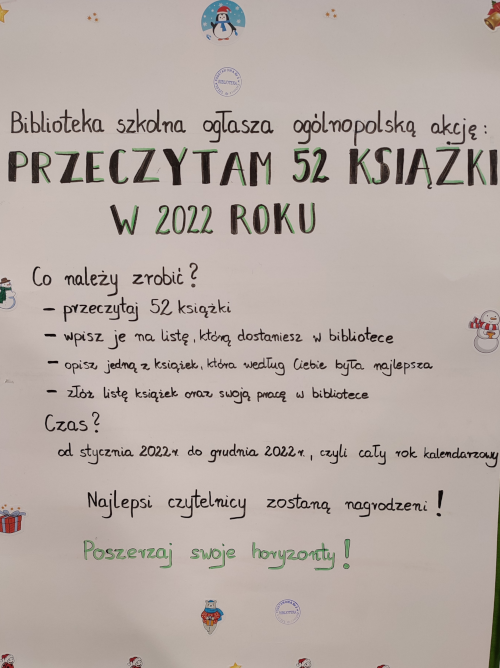 Biblioteka szkolna ogłasza ogólnopolską akcję:
PRZECZYTAM 52 KSIĄŻKI
W 2022 ROKU
Co należy zrobić?
– przeczytaj 52 książki
– wpisz je na listę, którą dostaniesz w bibliotece
– opisz jedną z książek, która według Ciebie była najlepsza
– złóż listę książek oraz swoją pracę w bibliotece
Czas?
od stycznia 2022r. do grudnia 2022r., czyli cały rok kalendarzowy
Najlepsi czytelnicy zostaną nagrodzeni!
Poszerzaj swoje horyzonty!